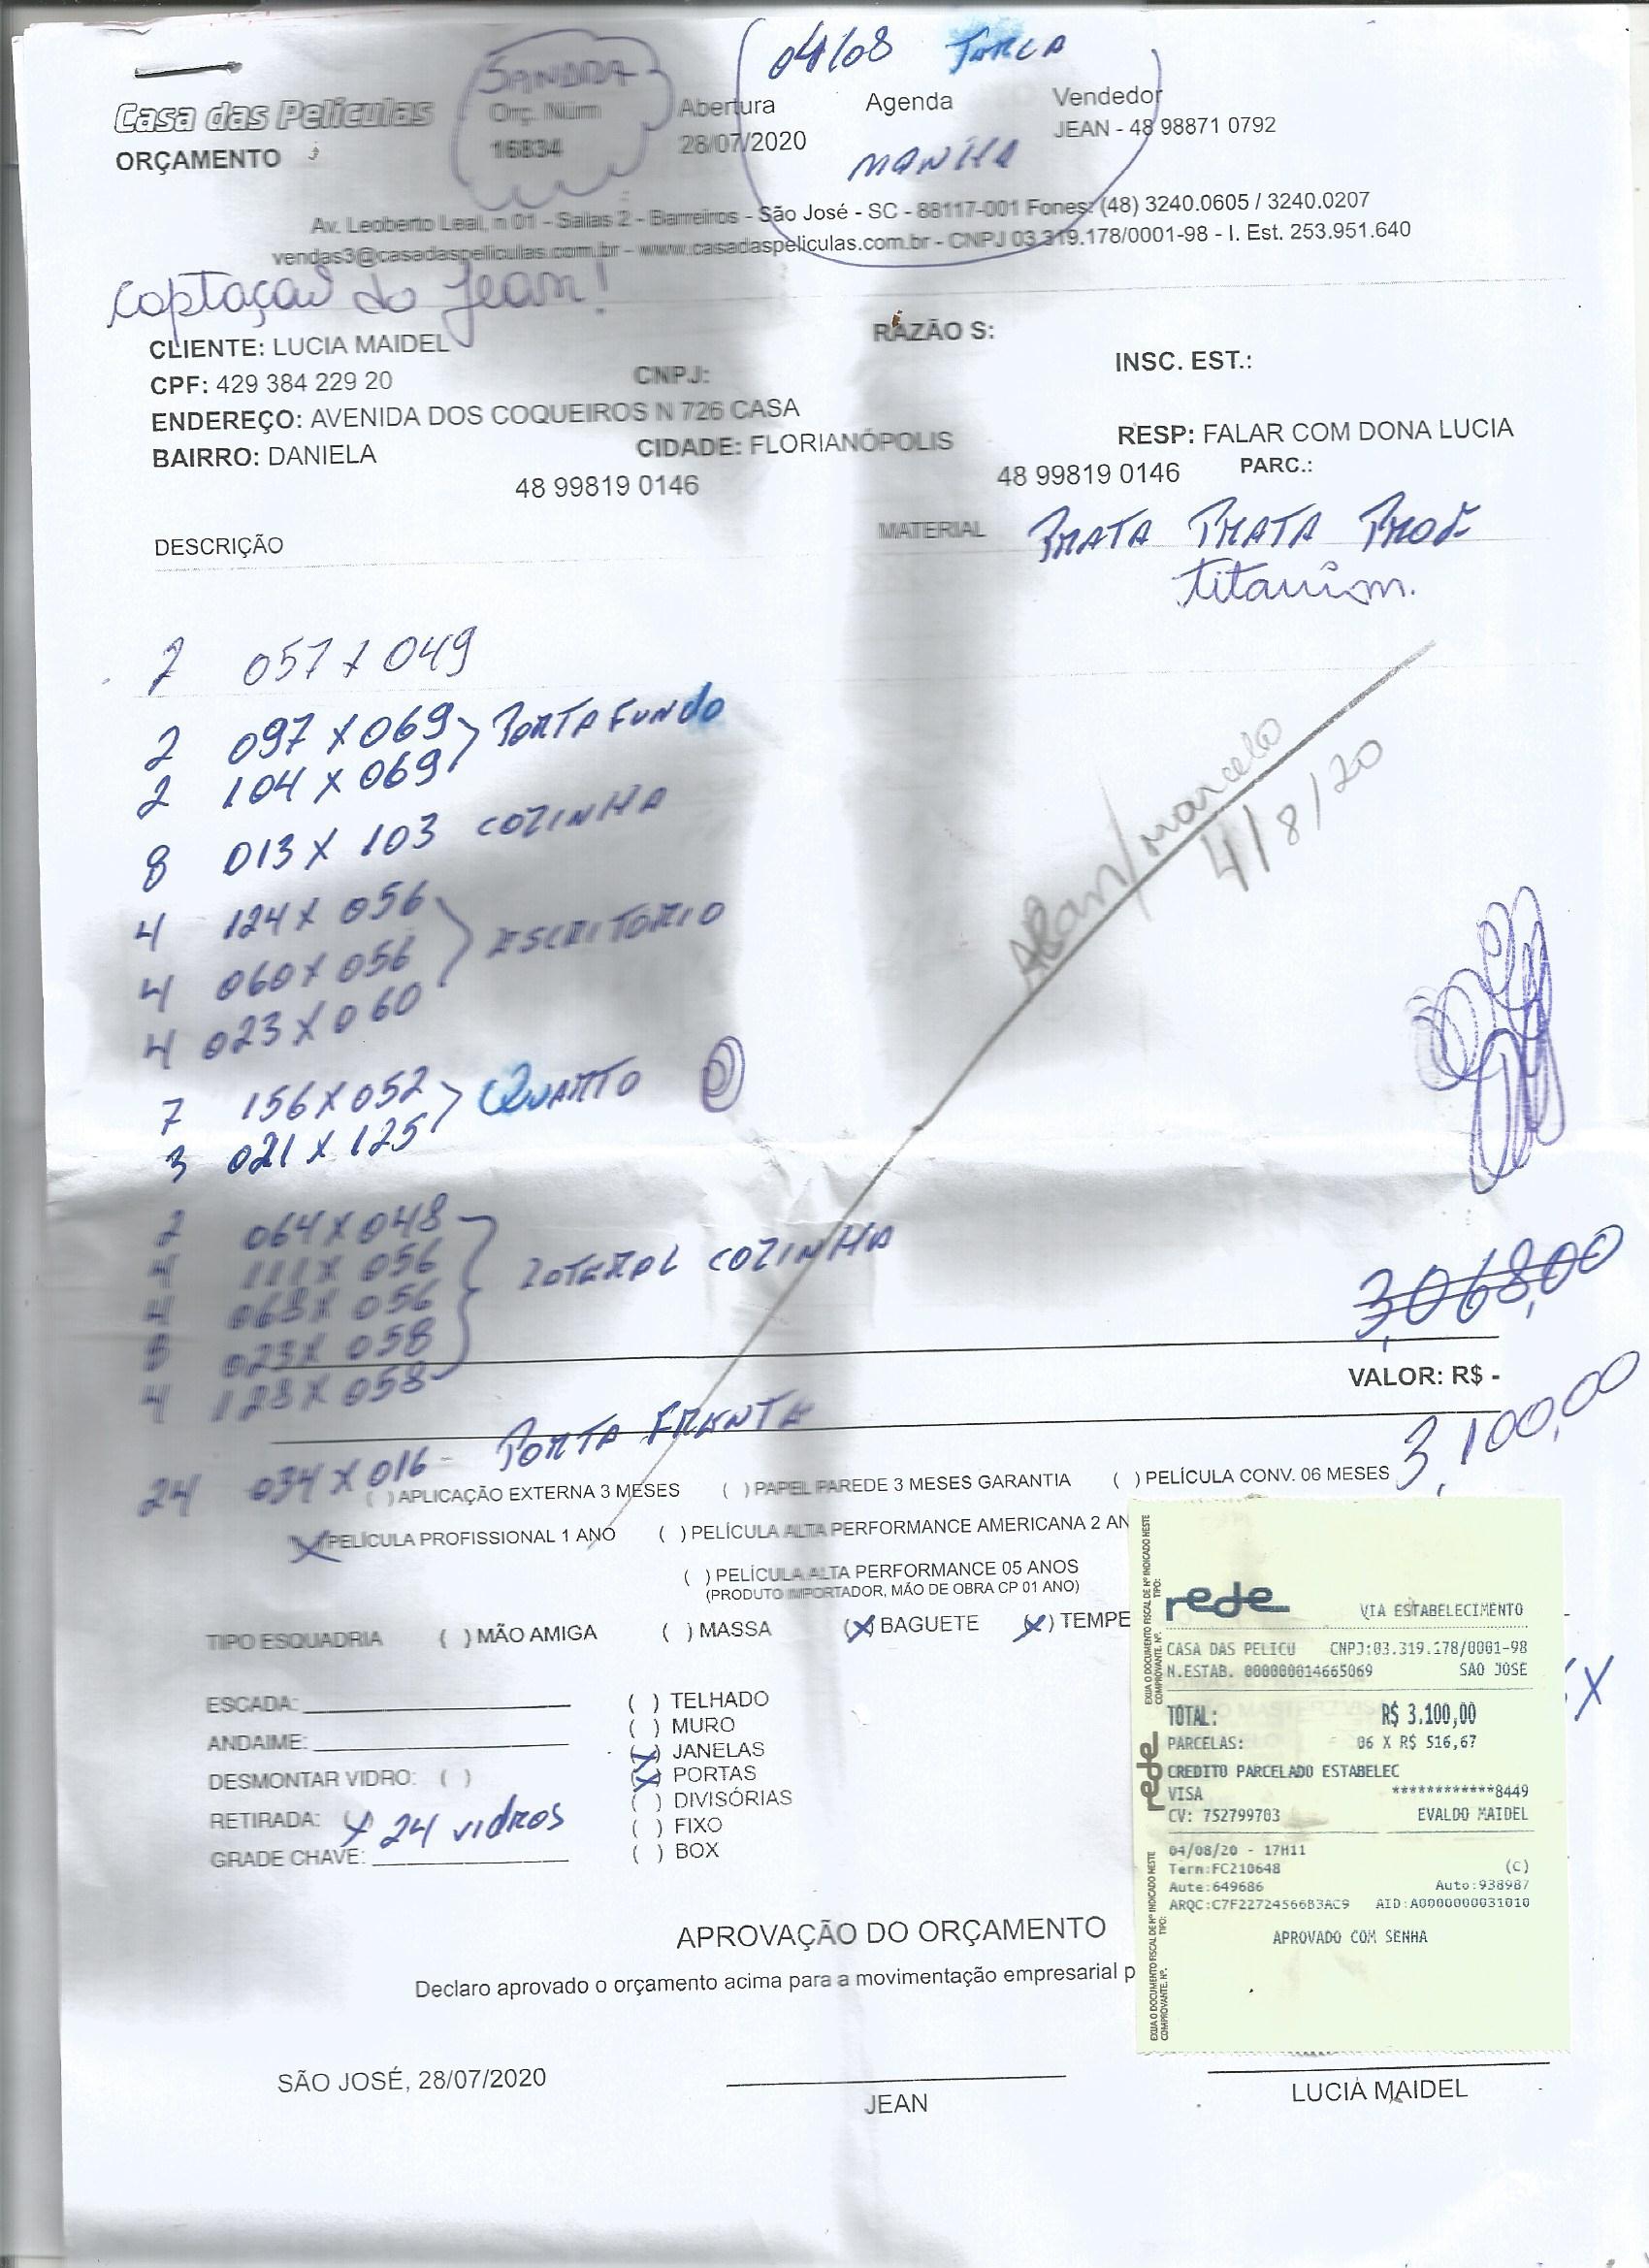 04/08 TERCA
SANDRA
Casa das Películas Orç. Núm Abertura Agenda Vendedor
ORÇAMENTO 16834 28/07/2020 MANHA JEAN - 48 98871 0792
Av. Leoberto Leal, n 01 - Salas 2 - Barreiros - São José - SC - 88117-001 Fones: (48) 3240.0605 / 3240.0207
vendas3@casadaspeliculas.com.br - www.casadaspeliculas.com.br - CNPJ 03.319.178/0001-98 - I. Est. 253.951.640
Captação do Jean!
CLIENTE: LUCIA MAIDEL RAZÃO S:
CPF: 429 384 229 20 CNPJ: INSC. EST.:
ENDEREÇO: AVENIDA DOS COQUEIROS N 726 CASA
BAIRRO: DANIELA CIDADE: FLORIANÓPOLIS RESP: FALAR COM DONA LUCIA
48 99819 0146 48 99819 0146 PARC.:
DESCRIÇÃO MATERIAL PRATA PRATA PROF
titanium.
2 057 X 049
2 097 X 069 PORTA FUNDO
2 104 X 069
8 013 X 103 COZINHA
4 124 X 056
4 060 X 056 ESCRITORIO
4 023 X 060
Alan/marcelo
4/8/20
7 156 X 052 QUARTO
3 021 X 125
2 064 X 048
4 111 X 056 LATERAL COZINHA
4 063 X 056
8 023 X 058
4 123 X 058
3,068,00
VALOR: R$ -
3,100,00
24 034 X 016 - PORTA FRENTE
( ) APLICAÇÃO EXTERNA 3 MESES ( ) PAPEL PAREDE 3 MESES GARANTIA ( ) PELÍCULA CONV. 06 MESES
X PELÍCULA PROFISSIONAL 1 ANO ( ) PELÍCULA ALTA PERFORMANCE AMERICANA 2 AN
( ) PELÍCULA ALTA PERFORMANCE 05 ANOS
(PRODUTO IMPORTADOR, MÃO DE OBRA CP 01 ANO)
TIPO ESQUADRIA ( ) MÃO AMIGA ( ) MASSA (X) BAGUETE (X) TEMPE
ESCADA: ( ) TELHADO
( ) MURO
ANDAIME: (X) JANELAS
DESMONTAR VIDRO: ( ) (X) PORTAS
( ) DIVISÓRIAS
RETIRADA: X 24 vidros ( ) FIXO
GRADE CHAVE: ( ) BOX
X
EXIJA O DOCUMENTO FISCAL DE Nº INDICADO NESTE
COMPROVANTE. Nº. TIPO:
rede
rede
VIA ESTABELECIMENTO
CASA DAS PELICU CNPJ:03.319.178/0001-98
N.ESTAB. 000000014665069 SAO JOSE
TOTAL: R$ 3.100,00
PARCELAS: 06 X R$ 516,67
CREDITO PARCELADO ESTABELEC
VISA ************8449
CV: 752799703 EVALDO MAIDEL
04/08/20 - 17H11
Term:FC210648 (C)
Aute:649686 Auto:938987
ARQC:C7F22724566B3AC9 AID:A0000000031010
APROVADO COM SENHA
EXIJA O DOCUMENTO FISCAL DE Nº INDICADO NESTE
COMPROVANTE. Nº. TIPO:
APROVAÇÃO DO ORÇAMENTO
Declaro aprovado o orçamento acima para a movimentação empresarial p
SÃO JOSÉ, 28/07/2020
JEAN
LUCIA MAIDEL